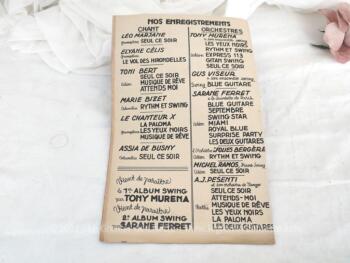 NOS ENREGISTREMENTS
CHANT
LÉO MARJANE
SEUL CE SOIR
ELYANE CÉLIS
LE VOL DES HIRONDELLES
TONI BERT
SEUL CE SOIR
Odéon MUSIQUE DE RÊVE
ATTENDS MOI
MARIE BIZET
Columbia RYTHM ET SWING
LE CHANTEUR X
LA PALOMA
LES YEUX NOIRS
MUSIQUE DE RÊVE
ASSIA DE BUSNY
Columbia SEUL CE SOIR
Vient de paraître
le 1er ALBUM SWING
par TONY MURENA
Vient de paraître
2e ALBUM SWING
par SARANE FERRET
ORCHESTRES
TONY MURENA
SEUL CE SOIR
LES YEUX NOIRS
RYTHM ET SWING
Odéon EXPRESS 113
GITAN SWING
SEUL CE SOIR
GUS VISEUR
Swing BLUE GUITARE
SARANE FERRET
BLUE GUITARE
SEPTEMBRE
SWING STAR
Odéon MIAMI
ROYAL BLUE
SURPRISE PARTY
LES DEUX GUITARES
L'Orchestre JOUES BERGÈRA
Odéon RYTHM ET SWING
MICHEL RAMOS, Piano Swing
Odéon SEUL CE SOIR
A.J. PESENTI
et son orchestre de Danse
SEUL CE SOIR
ATTENDS-MOI
Pathé MUSIQUE DE RÊVE
LES YEUX NOIRS
LA PALOMA
LES DEUX GUITARES